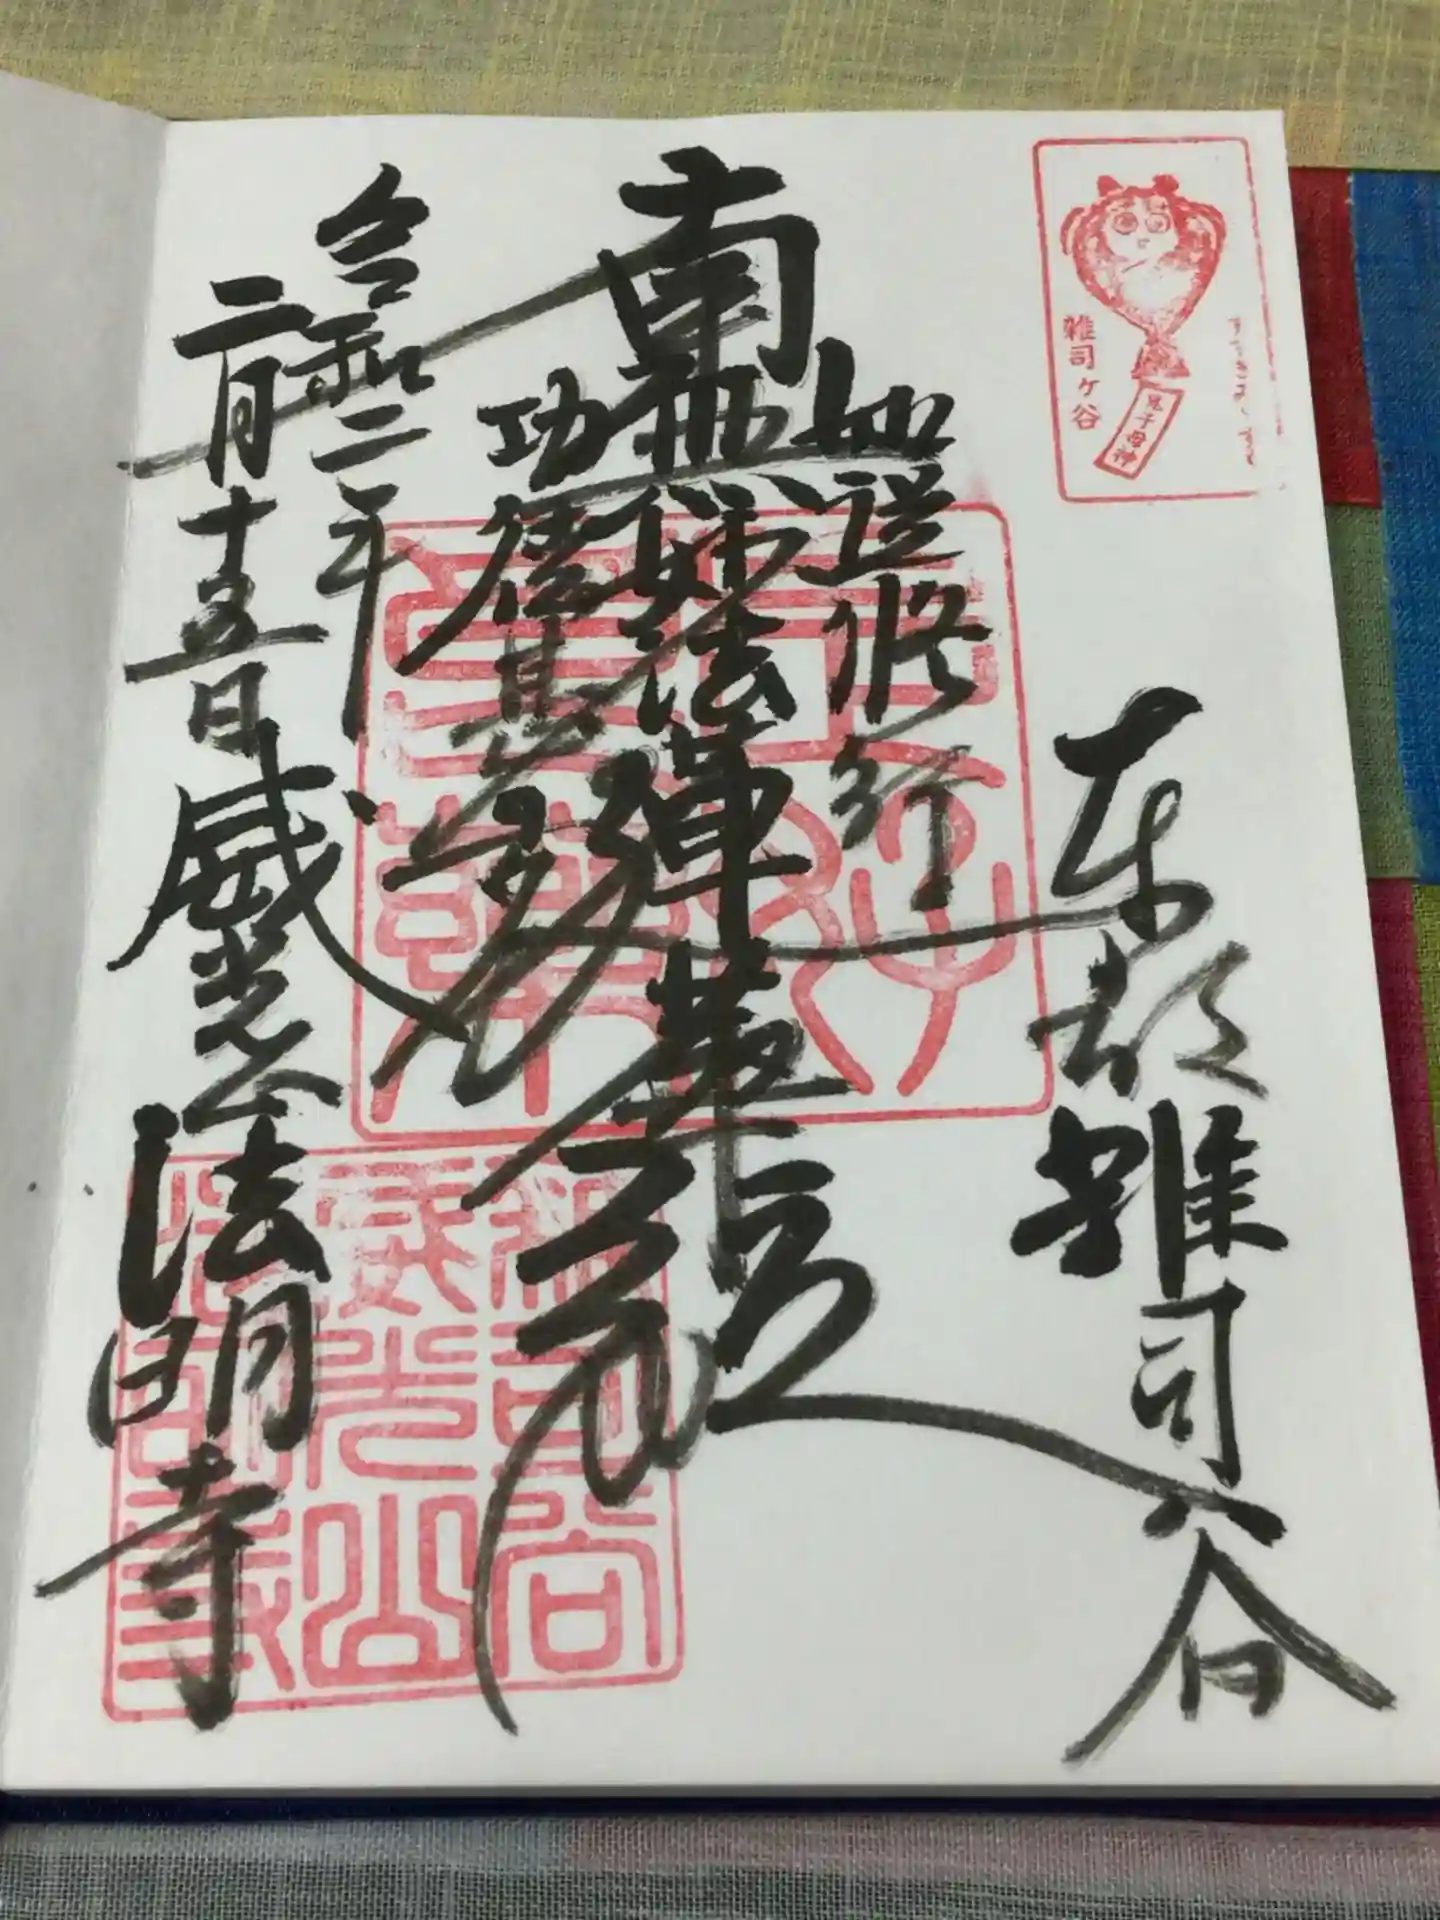 すすきみゝずく
雑司ケ谷
鬼子母神
東都雑司谷
如説修行
南無妙法蓮華経
功徳甚多
令和二年
二月十五日
威光山法明寺